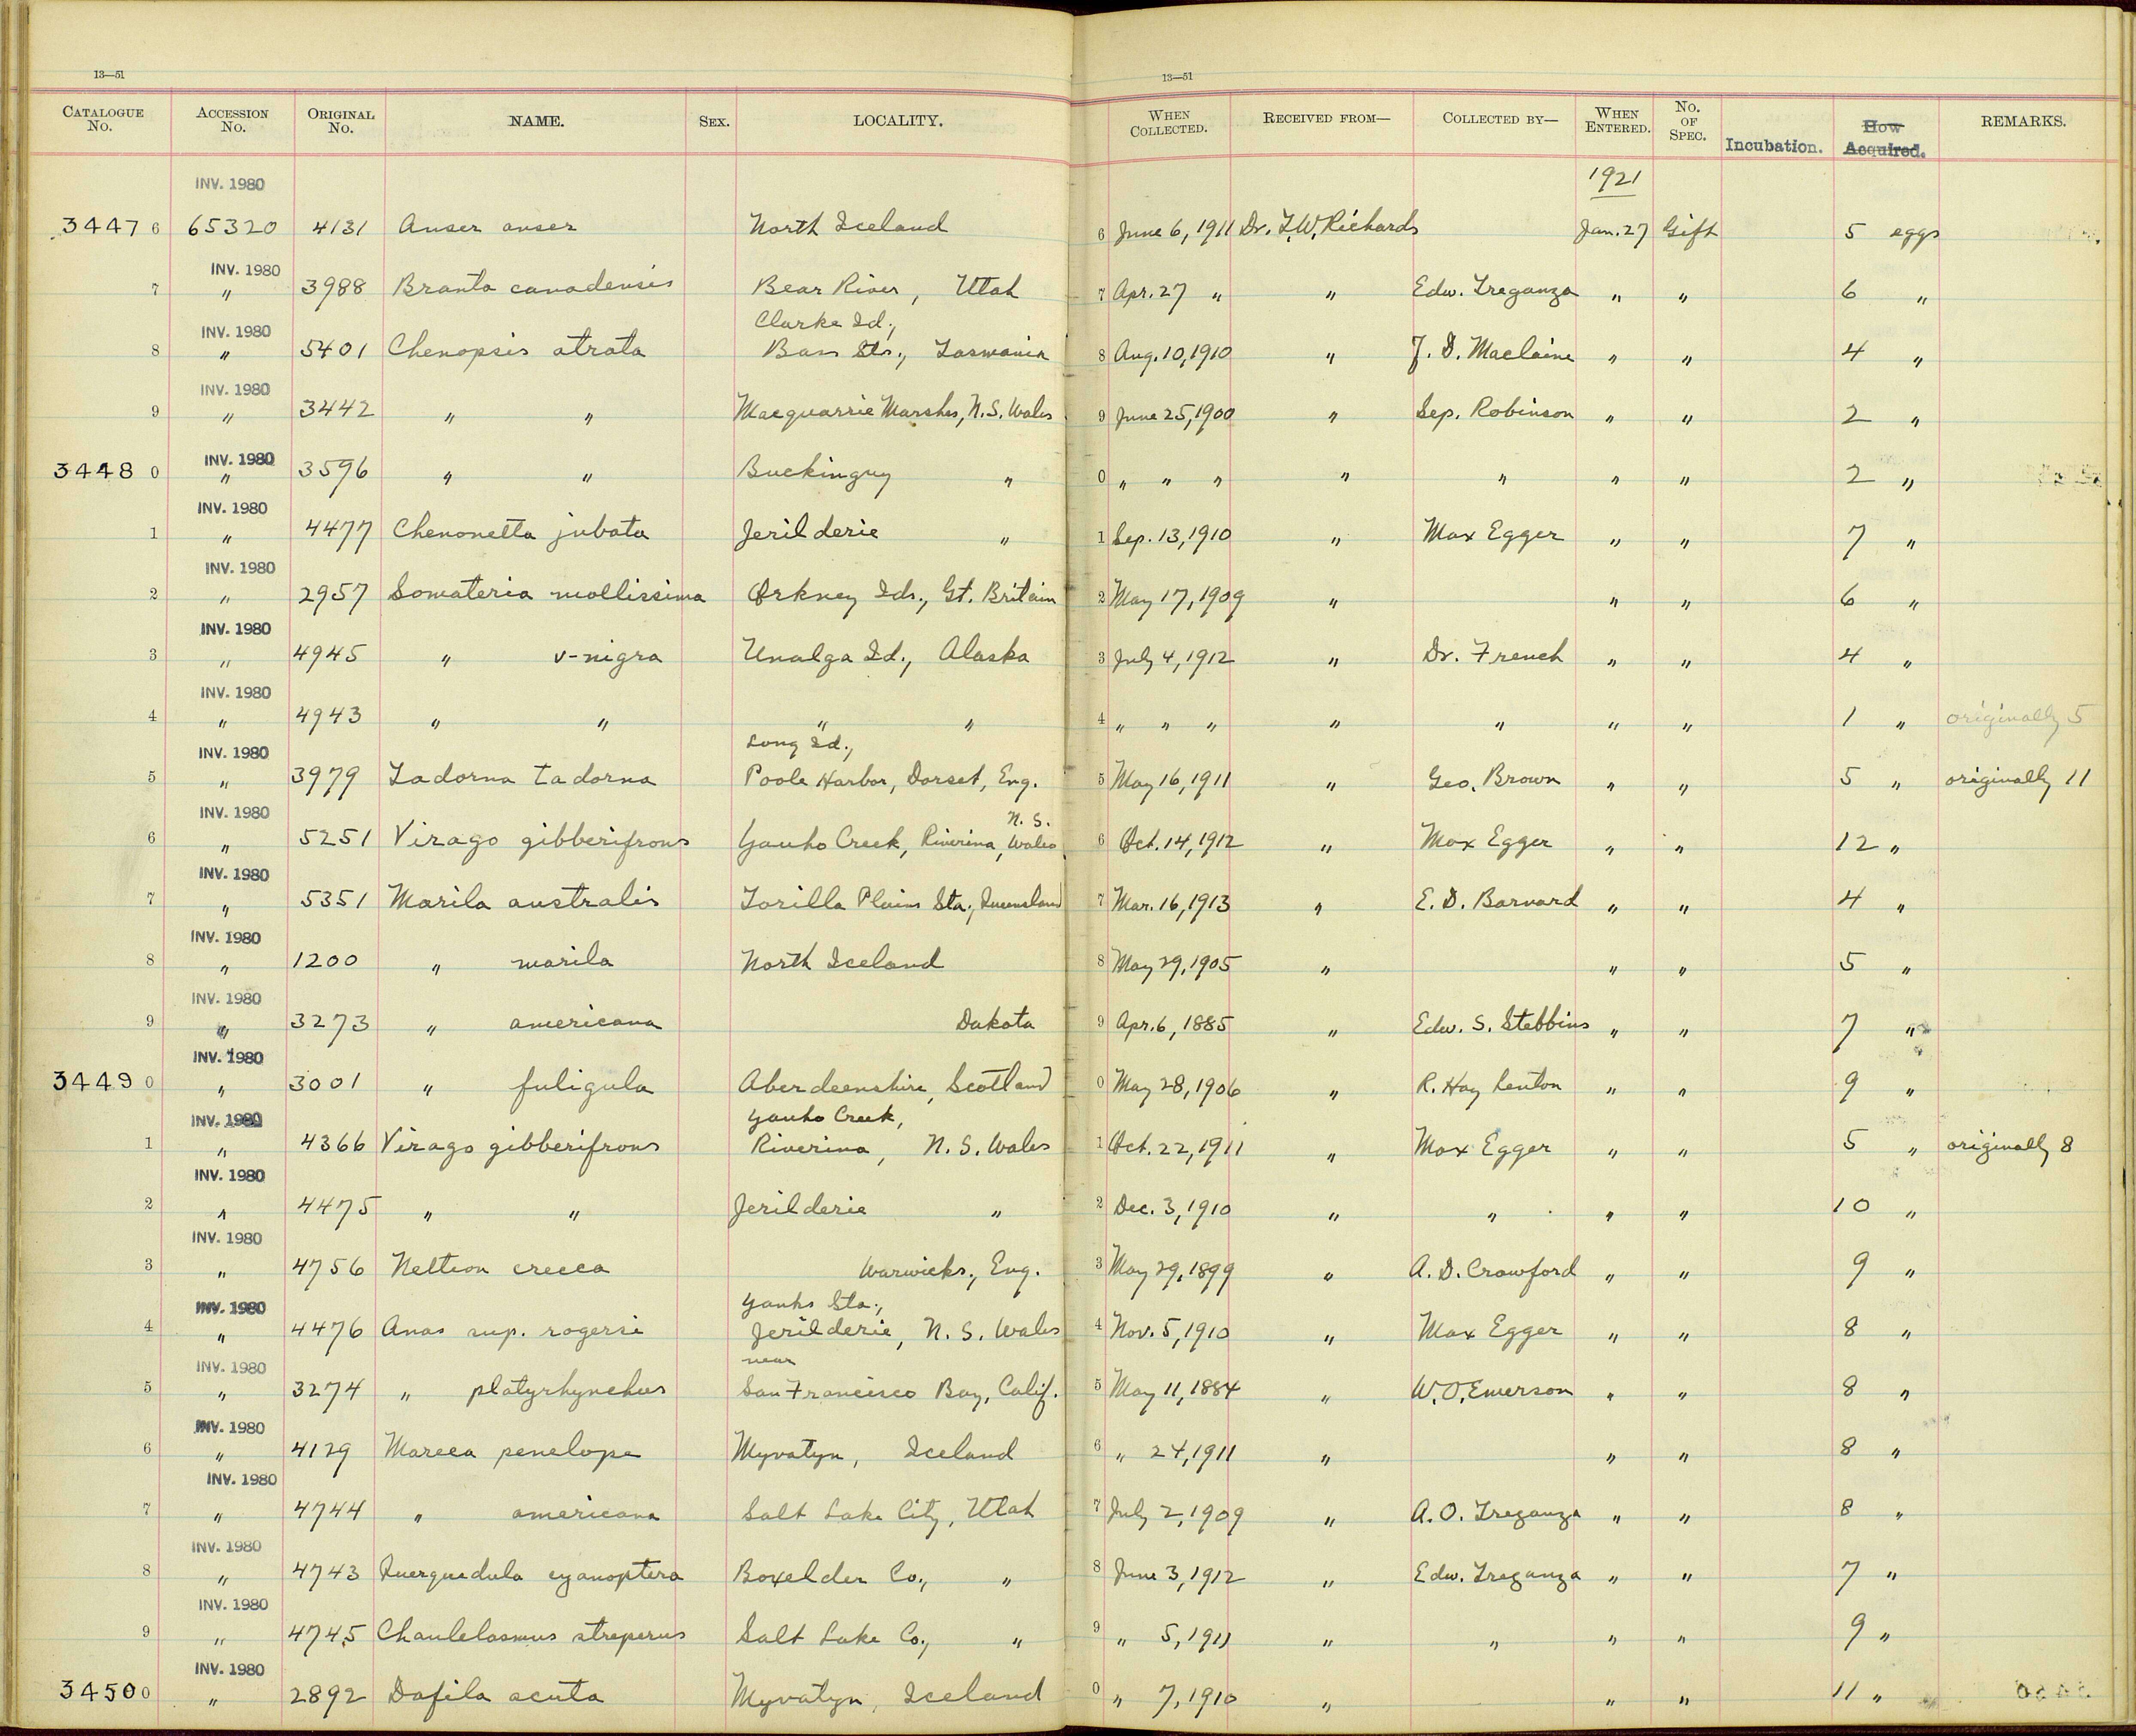 13—51 13—51
CATALOGUE No. ACCESSION No. ORIGINAL No. NAME. SEX. LOCALITY. WHEN COLLECTED. RECEIVED FROM— COLLECTED BY— WHEN ENTERED. No. OF SPEC. Incubation. How Acquired. REMARKS.
INV. 1980 1921
3447 6 65320 4131 Anser anser North Iceland 6 June 6, 1911 Dr. T.W. Richards Jan. 27 Gift 5 eggs
INV. 1980
7 " 3988 Branta canadensis Bear River, Utah 7 Apr. 27 " " Edw. Treganza " " 6 "
INV. 1980 Clarke Id.,
8 " 5401 Chenopsis atrata Bass Sts., Tasmania 8 Aug. 10, 1910 " J. D. Maclaine " " 4 "
INV. 1980
9 " 3442 " " Macquarrie Marshes, N.S. Wales 9 June 25, 1900 " Sep. Robinson " " 2 "
INV. 1980
3448 0 " 3596 " " Buckinguy " 0 " " " " " " " 2 "
INV. 1980
1 " 4477 Chenonetta jubata Jerilderie " 1 Sep. 13, 1910 " Max Egger " " 7 "
INV. 1980
2 " 2957 Somateria mollissima Orkney Ids., Gt. Britain 2 May 17, 1909 " " " 6 "
INV. 1980
3 " 4945 " v-nigra Unalga Id., Alaska 3 July 4, 1912 " Dr. French " " 4 "
INV. 1980
4 " 4943 " " " " 4 " " " " " " " 1 " originally 5
INV. 1980 Long Id.,
5 " 3979 Tadorna tadorna Poole Harbor, Dorset, Eng. 5 May 16, 1911 " Geo. Brown " " 5 " originally 11
INV. 1980 N. S.
6 " 5251 Virago gibberifrons Yanko Creek, Riverina, Wales 6 Oct. 14, 1912 " Max Egger " " 12 "
INV. 1980
7 " 5351 Marila australis Torilla Plains Sta., Queensland 7 Mar. 16, 1913 " E. D. Barnard " " 4 "
INV. 1980
8 " 1200 " marila North Iceland 8 May 29, 1905 " " " 5 "
INV. 1980
9 " 3273 " americana Dakota 9 Apr. 6, 1885 " Edw. S. Stebbins " " 7 "
INV. 1980
3449 0 " 3001 " fuligula Aberdeenshire, Scotland 0 May 28, 1906 " R. Hay Fenton " " 9 "
INV. 1980 Yanko Creek,
1 " 4366 Virago gibberifrons Riverina, N. S. Wales 1 Oct. 22, 1911 " Max Egger " " 5 " originally 8
INV. 1980
2 " 4475 " " Jerilderie " 2 Dec. 3, 1910 " " " " 10 "
INV. 1980
3 " 4756 Nettion crecca Warwicks, Eng. 3 May 29, 1899 " A. D. Crawford " " 9 "
INV. 1980 Yanko Sta.,
4 " 4476 Anas sup. rogersi Jerilderie, N. S. Wales 4 Nov. 5, 1910 " Max Egger " " 8 "
INV. 1980 near
5 " 3274 " platyrhynchus San Francisco Bay, Calif. 5 May 11, 1884 " W. O. Emerson " " 8 "
INV. 1980
6 " 4129 Mareca penelope Myvatyn, Iceland 6 " 24, 1911 " " " 8 "
INV. 1980
7 " 4744 " americana Salt Lake City, Utah 7 July 2, 1909 " A. O. Treganza " " 8 "
INV. 1980
8 " 4743 Querquedula cyanoptera Boxelder Co., " 8 June 3, 1912 " Edw. Treganza " " 7 "
INV. 1980
9 " 4745 Chaulelasmus streperus Salt Lake Co., " 9 " 5, 1911 " " " " 9 "
INV. 1980
3450 0 " 2892 Dafila acuta Myvatyn, Iceland 0 " 7, 1910 " " " 11 "